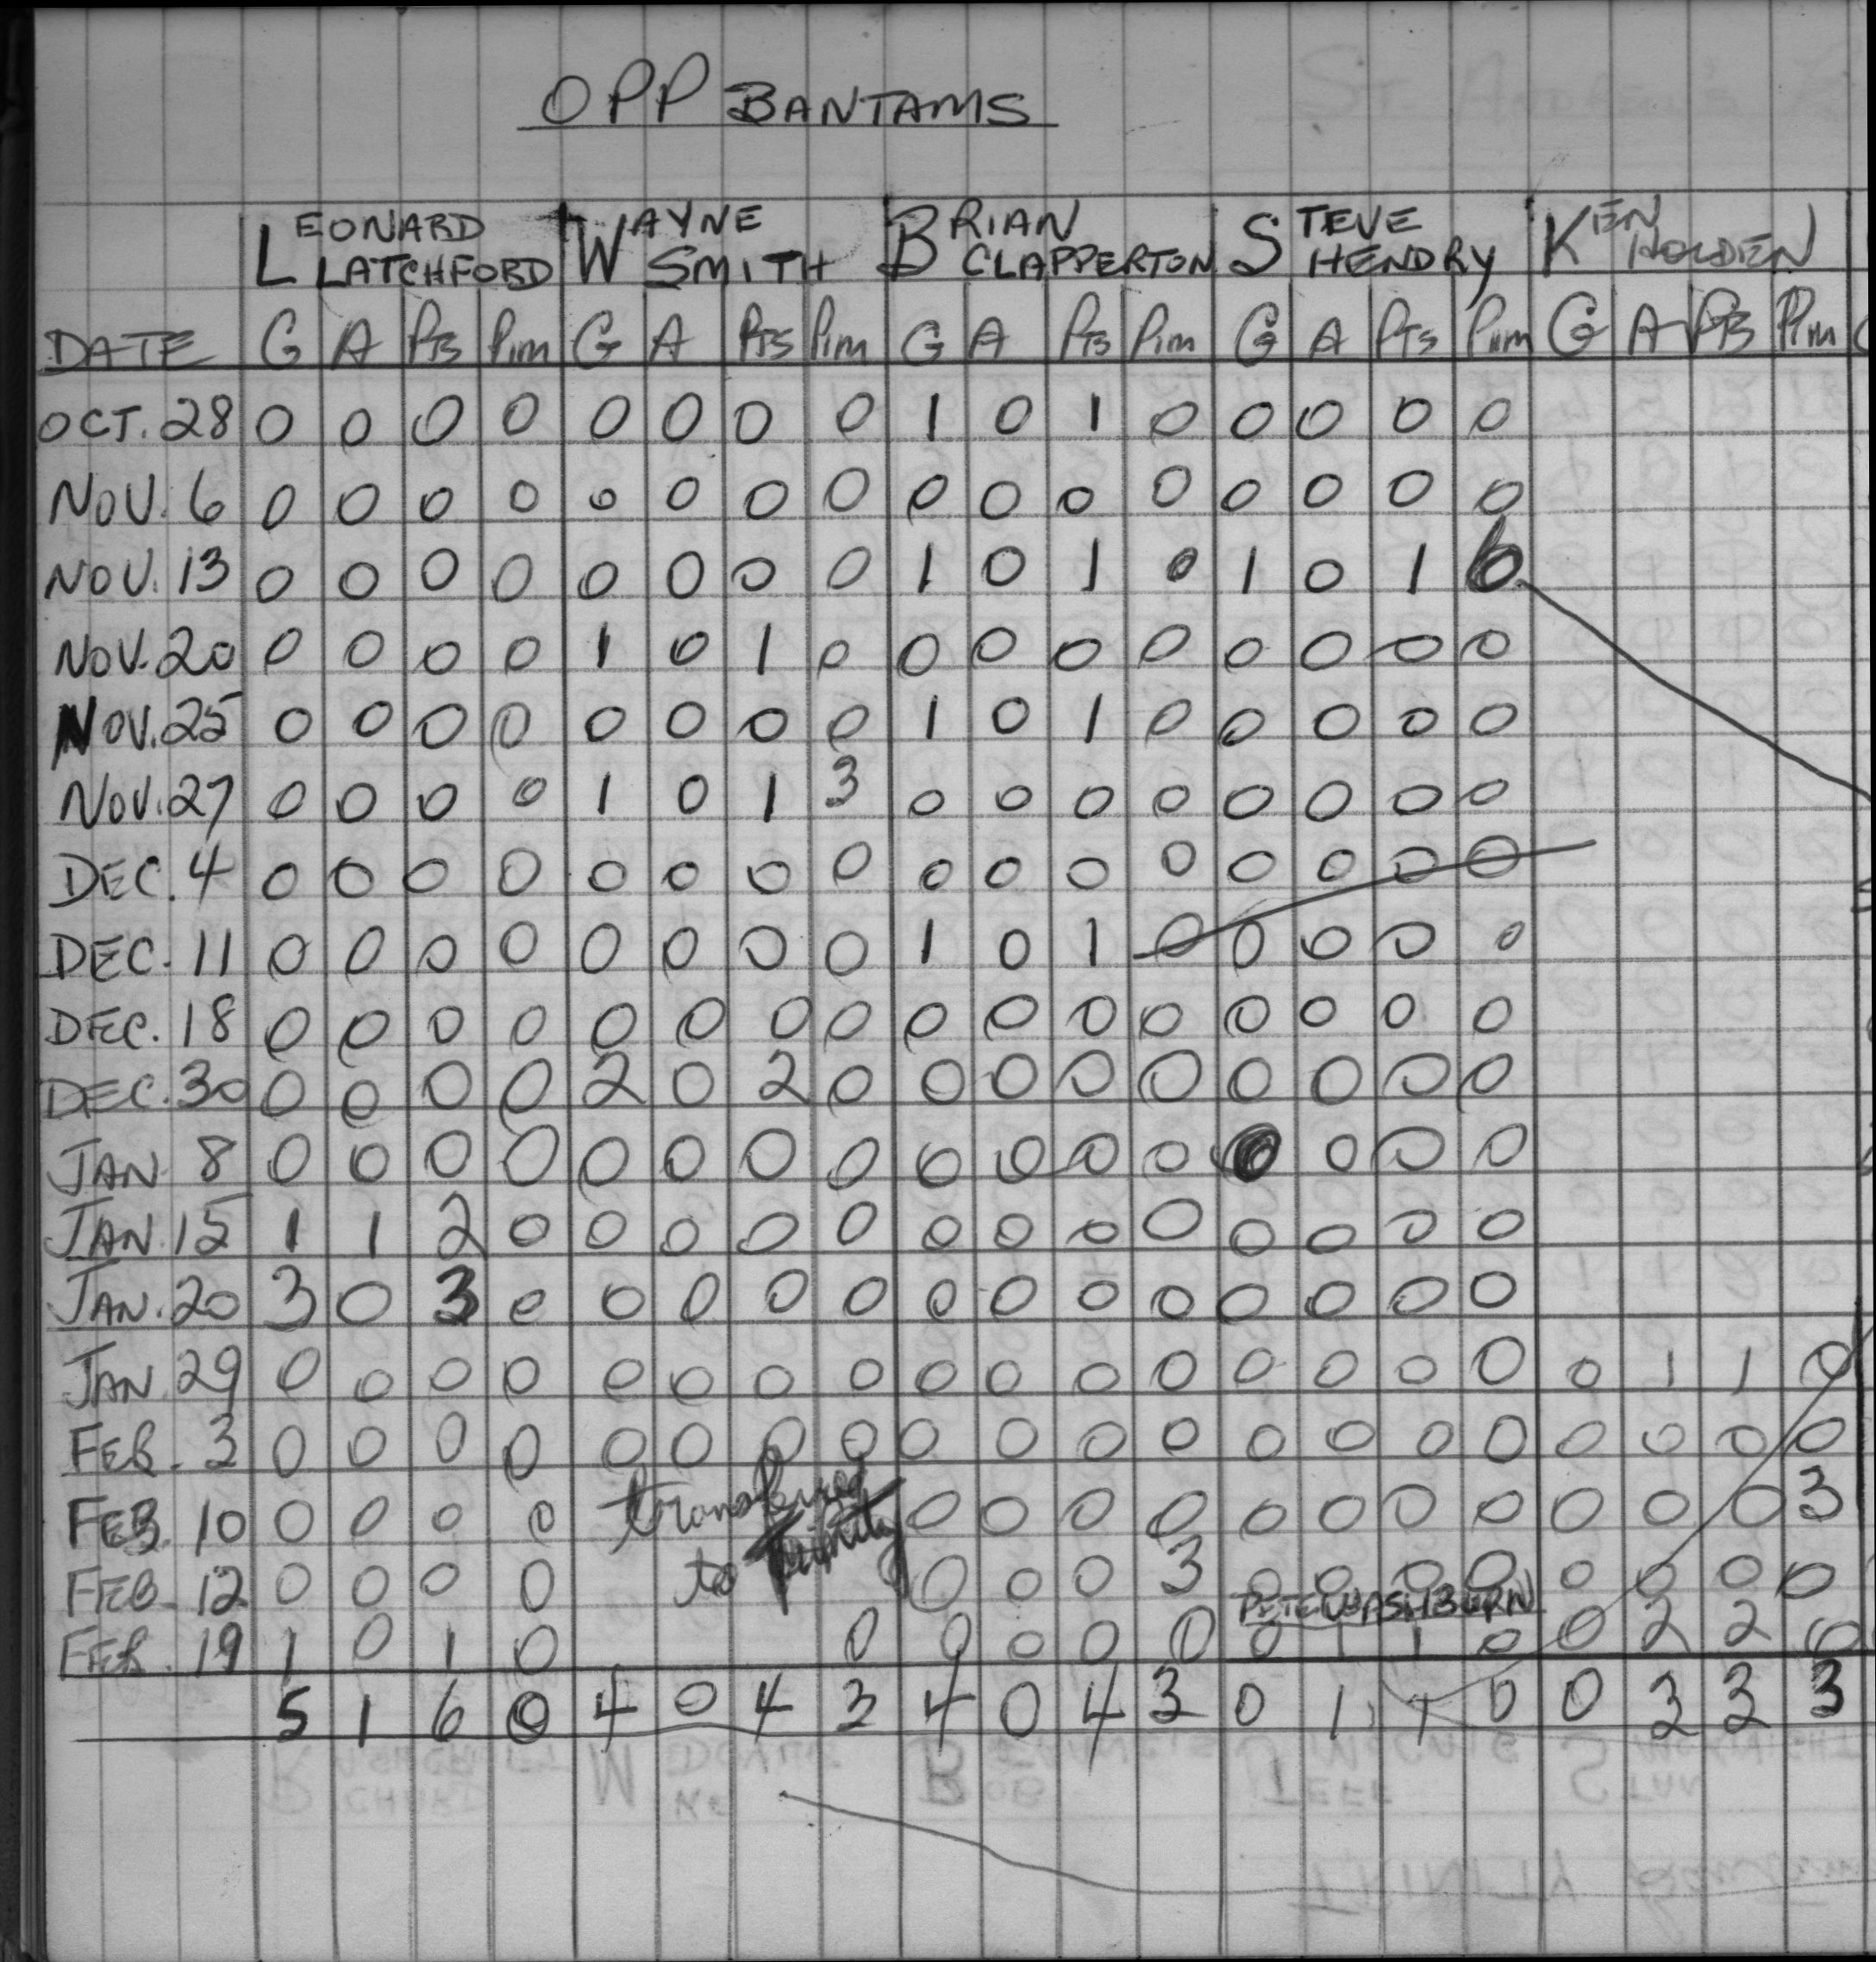 OPP BANTAMS
LEONARD LATCHFORD WAYNE SMITH BRIAN CLAPPERTON STEVE HENDRY KEN HOLDEN
DATE G A PTS Pim G A PTS Pim G A PTS Pim G A PTS Pim G A PTS Pim
OCT. 28 0 0 0 0 0 0 0 0 1 0 1 0 0 0 0 0
NOV. 6 0 0 0 0 0 0 0 0 0 0 0 0 0 0 0 0
NOV. 13 0 0 0 0 0 0 0 0 1 0 1 0 1 0 1
NOV. 20 0 0 0 0 1 0 1 0 0 0 0 0 0 0 0 0
NOV. 25 0 0 0 0 0 0 0 0 1 0 1 0 0 0 0 0
NOV. 27 0 0 0 0 1 0 1 3 0 0 0 0 0 0 0 0
DEC. 4 0 0 0 0 0 0 0 0 0 0 0 0 0 0 0 0
DEC. 11 0 0 0 0 0 0 0 0 1 0 1 0 0 0 0 0
DEC. 18 0 0 0 0 0 0 0 0 0 0 0 0 0 0 0 0
DEC. 30 0 0 0 0 2 0 2 0 0 0 0 0 0 0 0 0
JAN 8 0 0 0 0 0 0 0 0 0 0 0 0 0 0 0 0
JAN. 15 1 1 2 0 0 0 0 0 0 0 0 0 0 0 0 0
JAN. 20 3 0 3 0 0 0 0 0 0 0 0 0 0 0 0 0
JAN 29 0 0 0 0 0 0 0 0 0 0 0 0 0 0 0 0 0 1 1 0
FEB. 3 0 0 0 0 0 0 0 0 0 0 0 0 0 0 0 0 0 0 0 0
FEB. 10 0 0 0 0 transferred 0 0 0 0 0 0 0 0 0 0 0 3
to Trinity
FEB. 12 0 0 0 0 0 0 0 3 0 0 0 0 0 0 0 0
PETE WASHBURN
FEB. 19 1 0 1 0 0 0 0 0 0 0 1 1 0 0 2 2 0
5 1 6 0 4 0 4 3 4 0 4 3 0 1 1 0 0 3 3 3